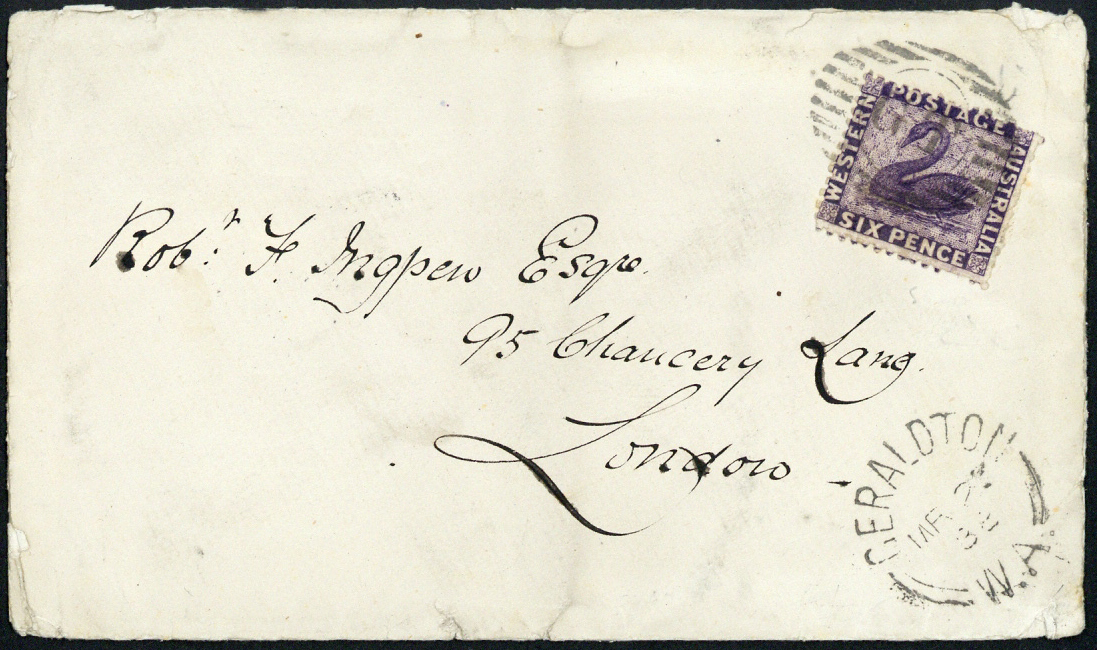 POSTAGE
WESTERN
AUSTRALIA
SIX PENCE
Robt. F. Ingpen Esqre.
95 Chancery Lane.
London
GERALDTON
W.A.